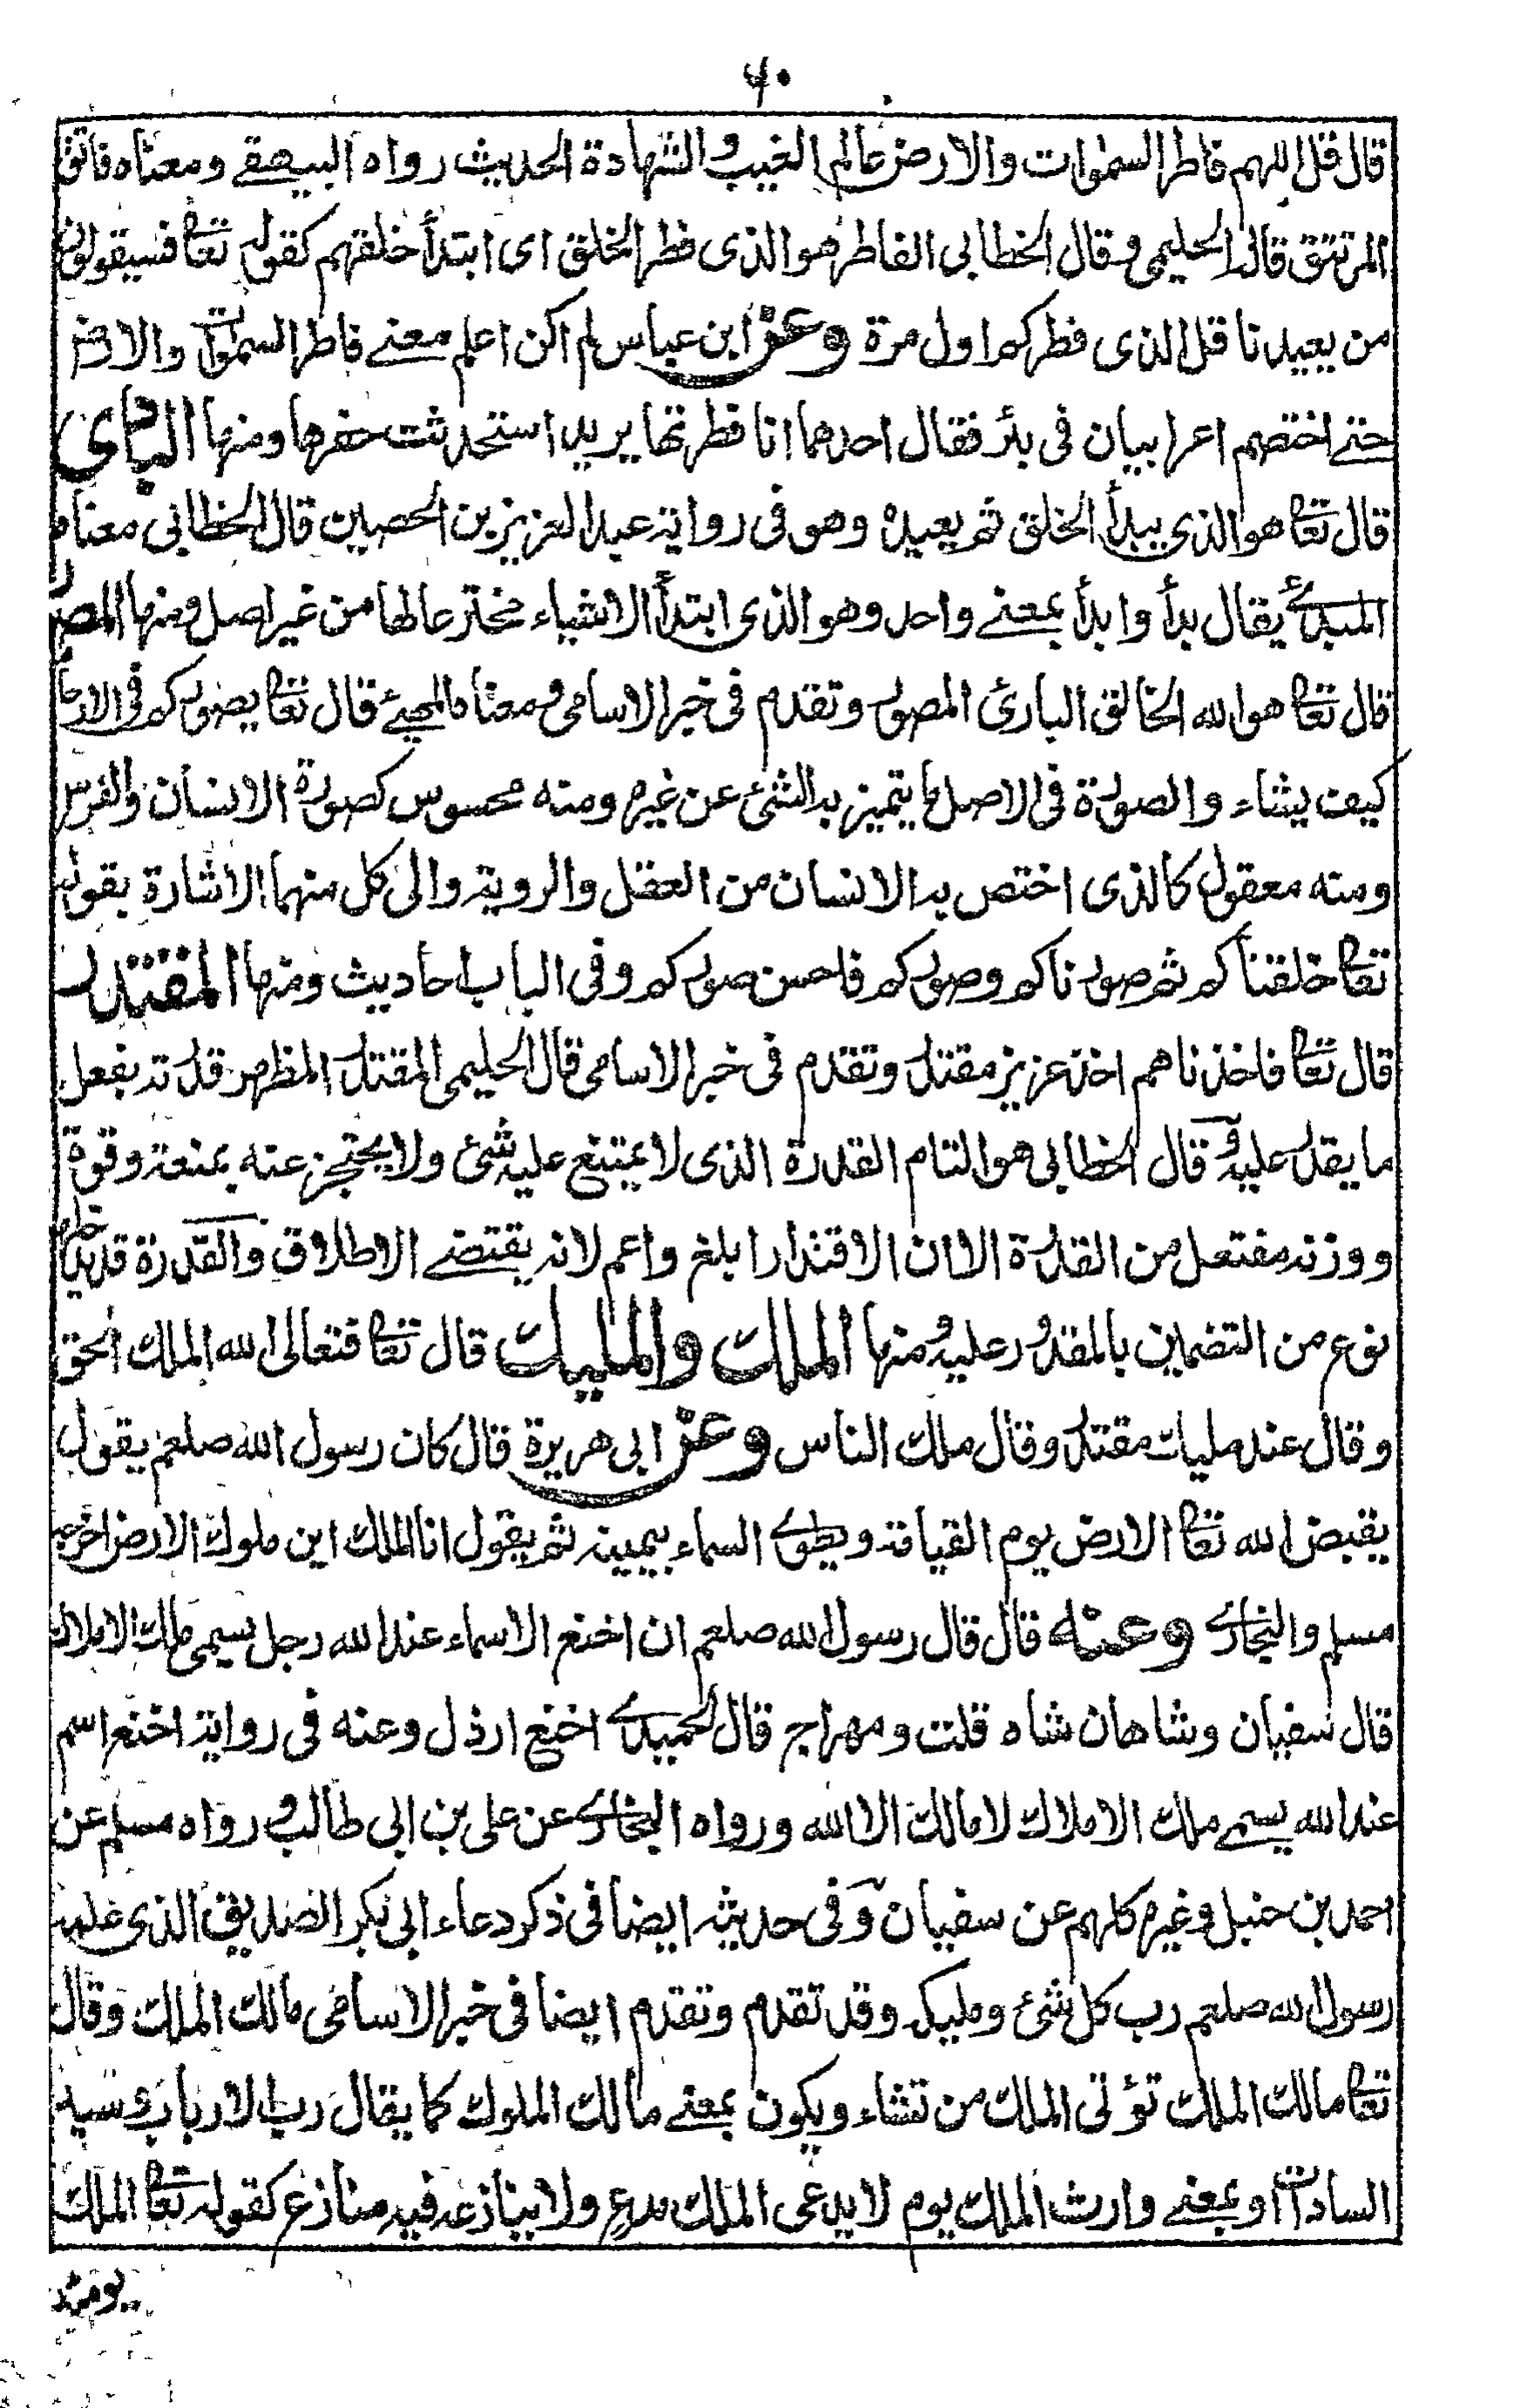 ٦٠
قال قل اللهم فاطر السموات والارض عالم الغيب والشهادة الحديث رواه البيهقي ومعناه فاتق
المرتتق قاله الحليمي وقال الخطابي الفاطر هو الذي فطر الخلق اي ابتدأ خلقهم كقوله تعا فسيقولون
من يعيدنا قل الذي فطركم اول مرة وعن ابن عباس لم اكن اعلم معنى فاطر السموات والارض
حتى اختصم اعرابيان في بئر فقال احدهما انا فطرتها يريد استحدثت حفرها ومنها البادي
قال تعا هو الذي يبدأ الخلق ثم يعيده وهو في رواية عبد العزيز بن الحصين قال الخطابي معناه
المبدئ يقال بدأ وابدأ بمعنى واحد وهو الذي ابتدأ الاشياء مخترعا لها من غير اصل ومنها المصور
قال تعا هو الله الخالق البارئ المصور وتقدم في خبر الاسامي ومعناه المهيئ قال تعا يصوركم في الارحام
كيف يشاء والصورة في الاصل ما يتميز به الشئ عن غيره ومنه محسوس كصورة الانسان والفرس
ومنه معقول كالذي اختص به الانسان من العقل والروية والى كل منهما الاشارة بقوله
تعا خلقناكم ثم صورناكم وصوركم فاحسن صوركم وفي الباب احاديث ومنها المقتدر
قال تعا فاخذناهم اخذ عزيز مقتدر وتقدم في خبر الاسامي قال الحليمي المقتدر المظهر قدرته بفعل
ما يقدر عليه وقال الخطابي هو التام القدرة الذي لا يمتنع عليه شئ ولا يحتجز عنه بمنعة وقوة
ووزنه مفتعل من القدرة الا ان الاقتدار ابلغ واعم لانه يقتضي الاطلاق والقدرة قد يدخلها
نوع من التضمين بالمقدور عليه ومنها الملك والمليك قال تعا فتعالى الله الملك الحق
وقال عند مليك مقتدر وقال ملك الناس وعن ابي هريرة قال كان رسول الله صلعم يقول
يقبض الله تعا الارض يوم القيامة ويطوي السماء بيمينه ثم يقول انا الملك اين ملوك الارض اخرجه
مسلم والبخاري وعنه قال قال رسول الله صلعم ان اخنع الاسماء عند الله رجل يسمى ملك الاملاك
قال سفيان وشاهان شاه قلت ومهراج قال الحميدي اخنع ارذل وعنه في رواية اخنع اسم
عند الله يسمى ملك الاملاك لا مالك الا الله ورواه البخاري عن علي بن ابي طالب ورواه مسلم عن
احمد بن حنبل وغيره كلهم عن سفيان وفي حديثه ايضا في ذكر دعاء ابي بكر الصديق الذي علمه
رسول الله صلعم رب كل شئ ومليكه وقد تقدم وتقدم ايضا في خبر الاسامي مالك الملك وقال
تعا مالك الملك تؤتي الملك من تشاء ويكون بمعنى مالك الملوك كما يقال رب الارباب وسيد
السادات او بمعنى وارث الملك يوم لا يدعي الملك مدع ولا ينازعه فيه منازع كقوله تعا الملك
يومئذ